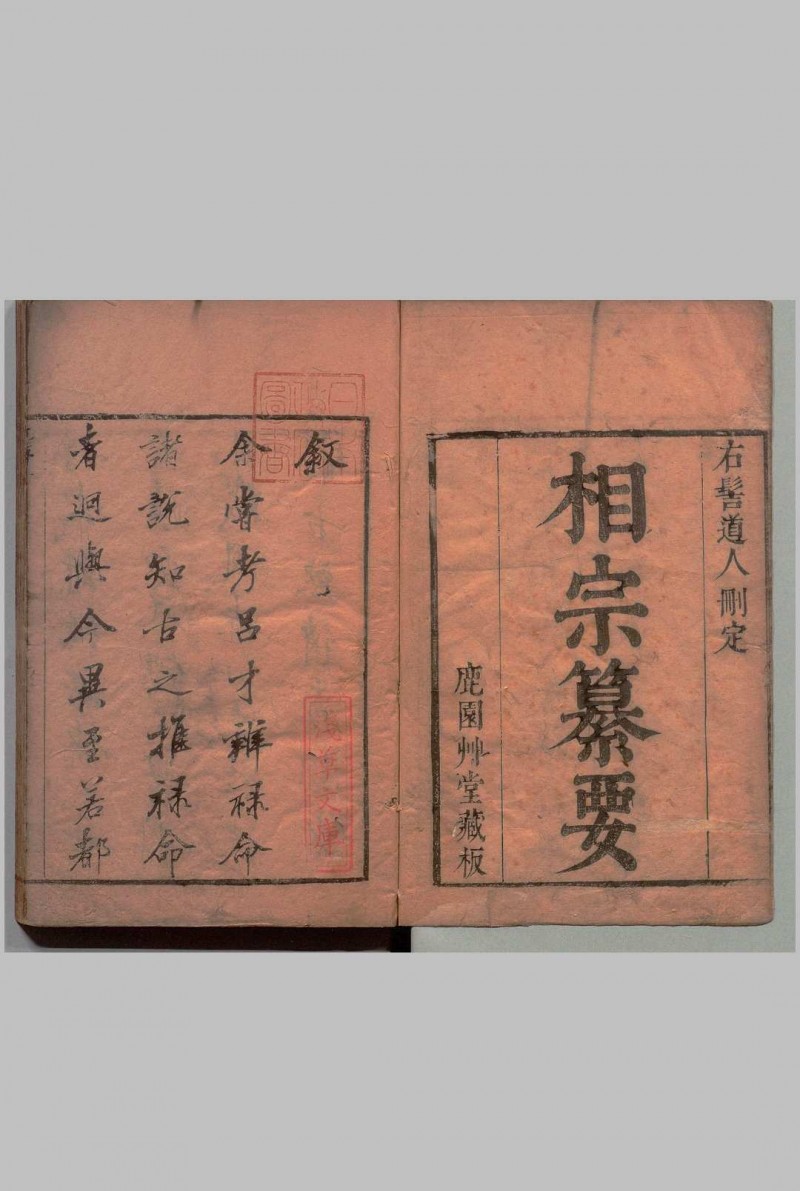 右髻道人刪定
相宗纂要
鹿園艸堂藏板
敘
余嘗考呂才雜祿命
諸說知古之推祿命
者迥與今異至若都
文庫
圖書